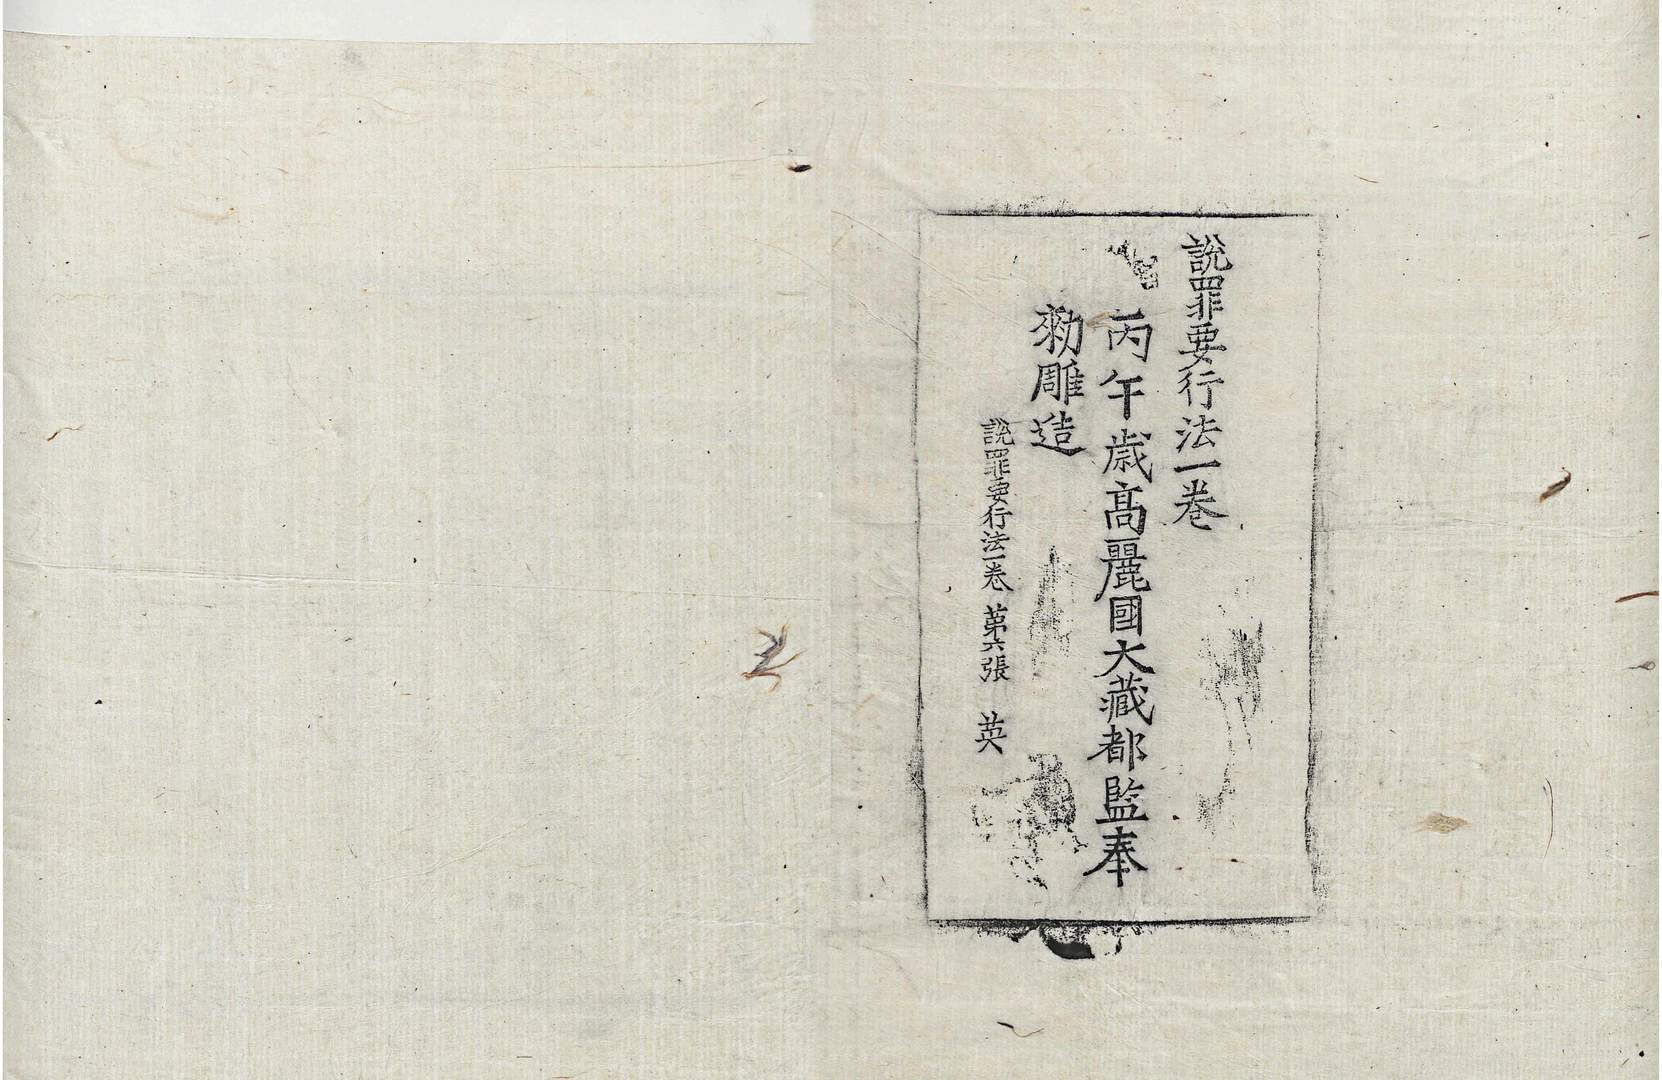 説罪要行法一卷
丙午歳高麗國大藏都監奉
勑雕造
説罪要行法一卷 苐六張 英